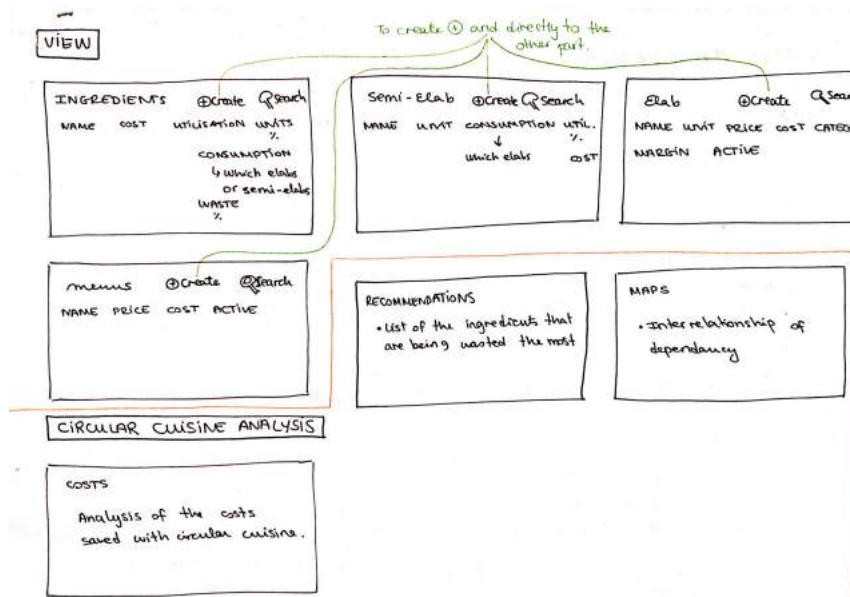 To create ⊕ and directly to the
other part.
VIEW
INGREDIENTS ⊕Create Search
NAME COST UTILISATION UNITS
%
CONSUMPTION
↳ which elabs
or semi-elabs
WASTE
%
Semi-Elab ⊕Create Search
NAME UNIT CONSUMPTION UTIL.
↓ %
which elabs COST
Elab ⊕Create Sear
NAME UNIT PRICE COST CATEG
MARGIN ACTIVE
menus ⊕Create Search
NAME PRICE COST ACTIVE
RECOMMENDATIONS
• List of the ingredients that
are being wasted the most
MAPS
• Interrelationship of
dependancy
CIRCULAR CUISINE ANALYSIS
COSTS
Analysis of the costs
saved with circular cuisine.